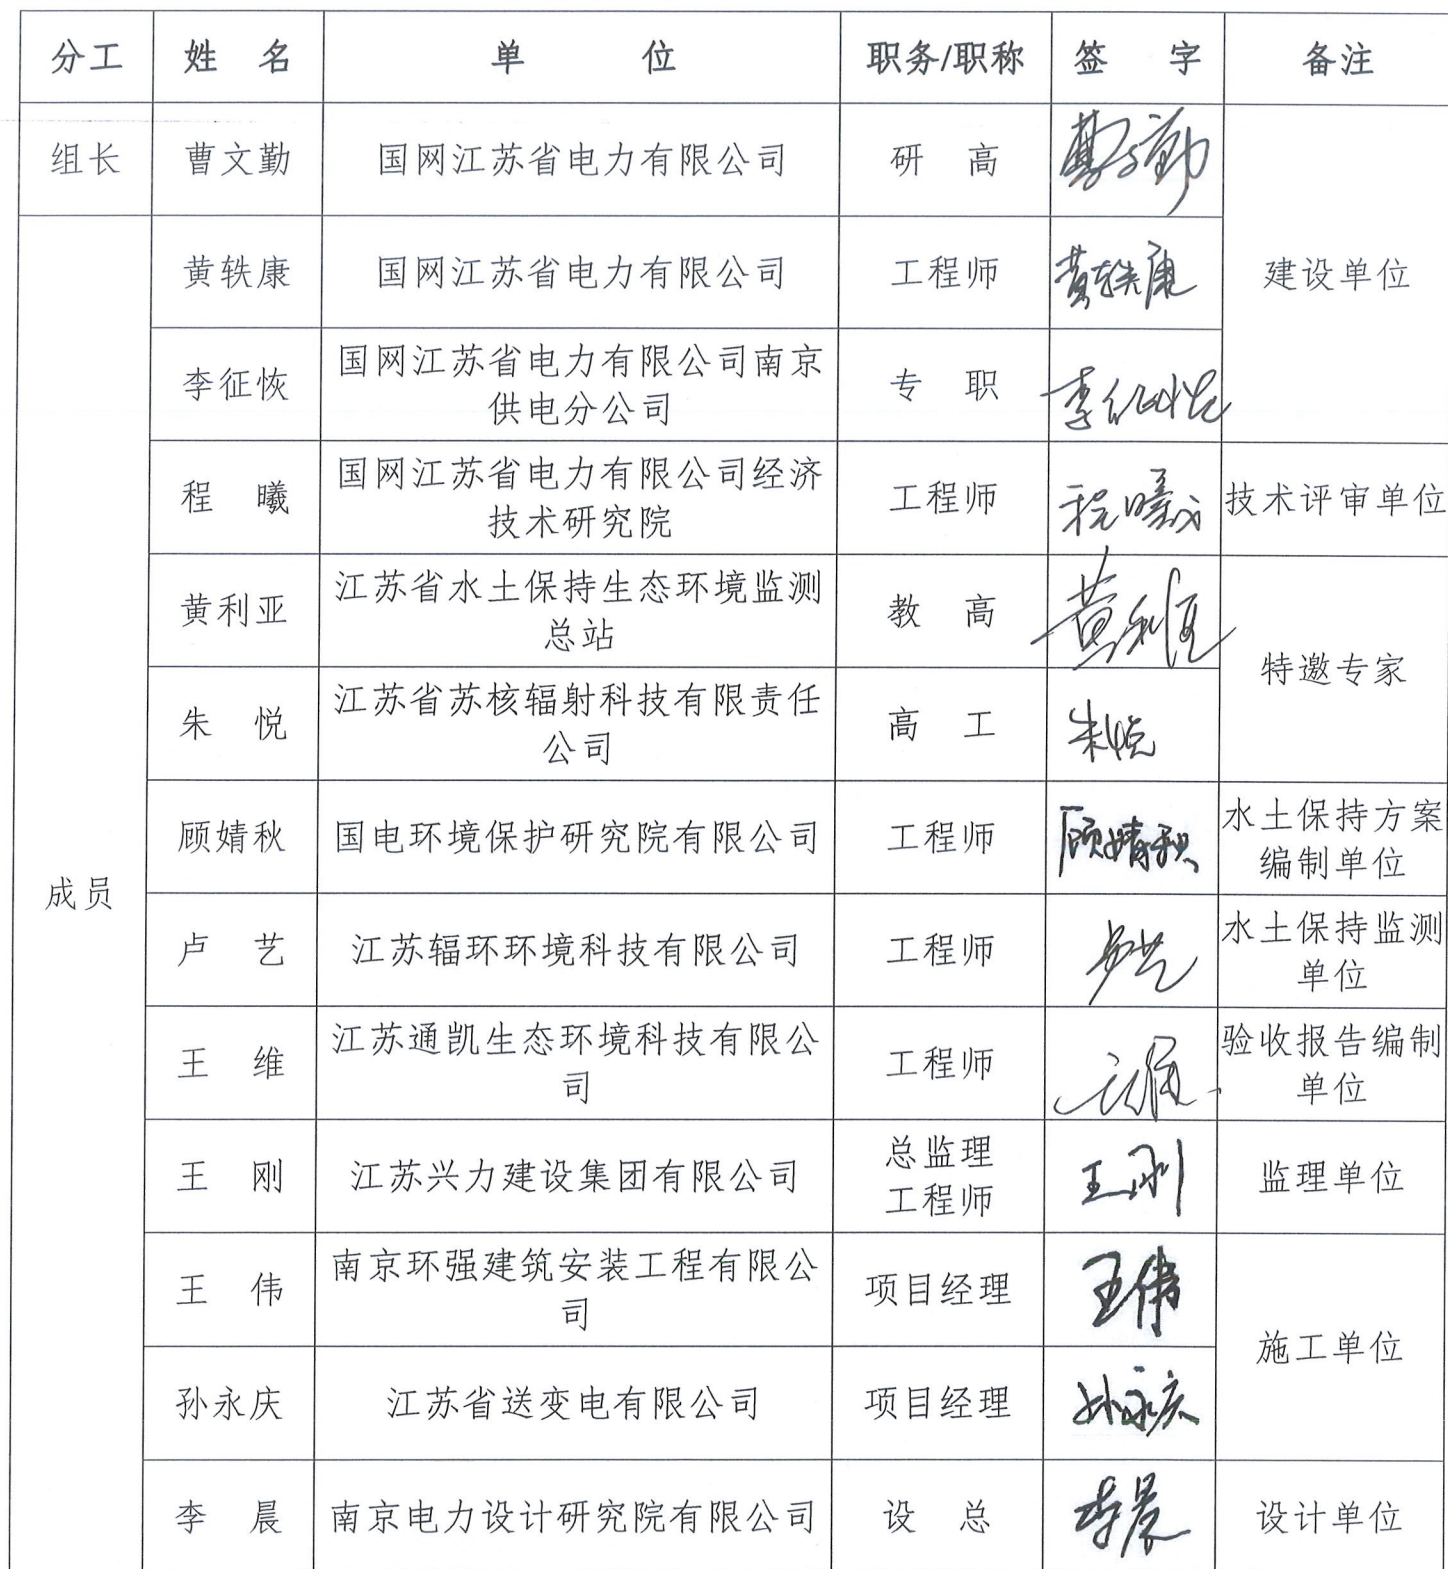 分工 姓 名 单 位 职务/职称 签 字 备注
组长 曹文勤 国网江苏省电力有限公司 研 高 曹文勤
黄轶康 国网江苏省电力有限公司 工程师 黄轶康 建设单位
李征恢 国网江苏省电力有限公司南京
供电分公司 专 职 李征恢
程 曦 国网江苏省电力有限公司经济
技术研究院 工程师 程曦 技术评审单位
黄利亚 江苏省水土保持生态环境监测
总站 教 高 黄利亚
特邀专家
朱 悦 江苏省苏核辐射科技有限责任
公司 高 工 朱悦
顾婧秋 国电环境保护研究院有限公司 工程师 顾婧秋 水土保持方案
编制单位
成员
卢 艺 江苏辐环环境科技有限公司 工程师 卢艺 水土保持监测
单位
王 维 江苏通凯生态环境科技有限公
司 工程师 王维 验收报告编制
单位
王 刚 江苏兴力建设集团有限公司 总监理
工程师 王刚 监理单位
王 伟 南京环强建筑安装工程有限公
司 项目经理 王伟
施工单位
孙永庆 江苏省送变电有限公司 项目经理 孙永庆
李 晨 南京电力设计研究院有限公司 设 总 李晨 设计单位